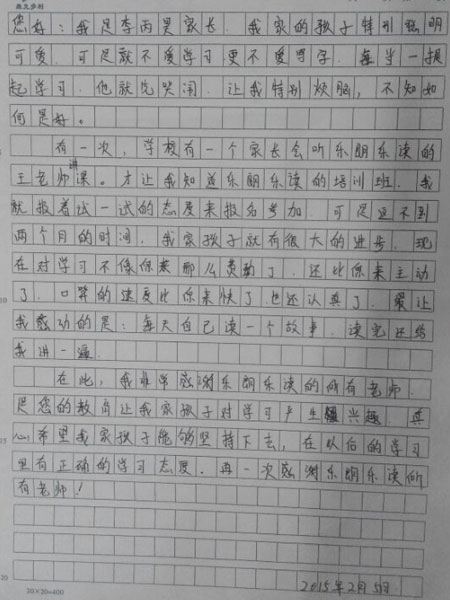 您好：我是李丙昊家长．我家的孩子特别聪明
可爱．可是就不爱学习更不爱写字．每当一提
起学习．他就先哭闹．让我特别烦脑，不知如
何是好。
有一次，学校有一个家长会听乐朗乐读的
王老师讲课。才让我知道乐朗乐读的培训班．我
就报着试一试的态度来报名参加．可是还不到
两个月的时间．我家孩子就有很大的进步．现
在对学习不像原来那么费劲了．还比原来主动
了．口算的速度比原来快了也还认真了．最让
我感动的是：每天自己读一个故事．读完还给
我讲一遍．
在此，我非常感谢乐朗乐读的所有老师．
是您的教育让我家孩子对学习产生兴趣．真
心希望我家孩子能够坚持下去，在以后的学习
里有正确的学习态度．再一次感谢乐朗乐读所
有老师！
2015年2月5日
5
10
15
20
20×20=400